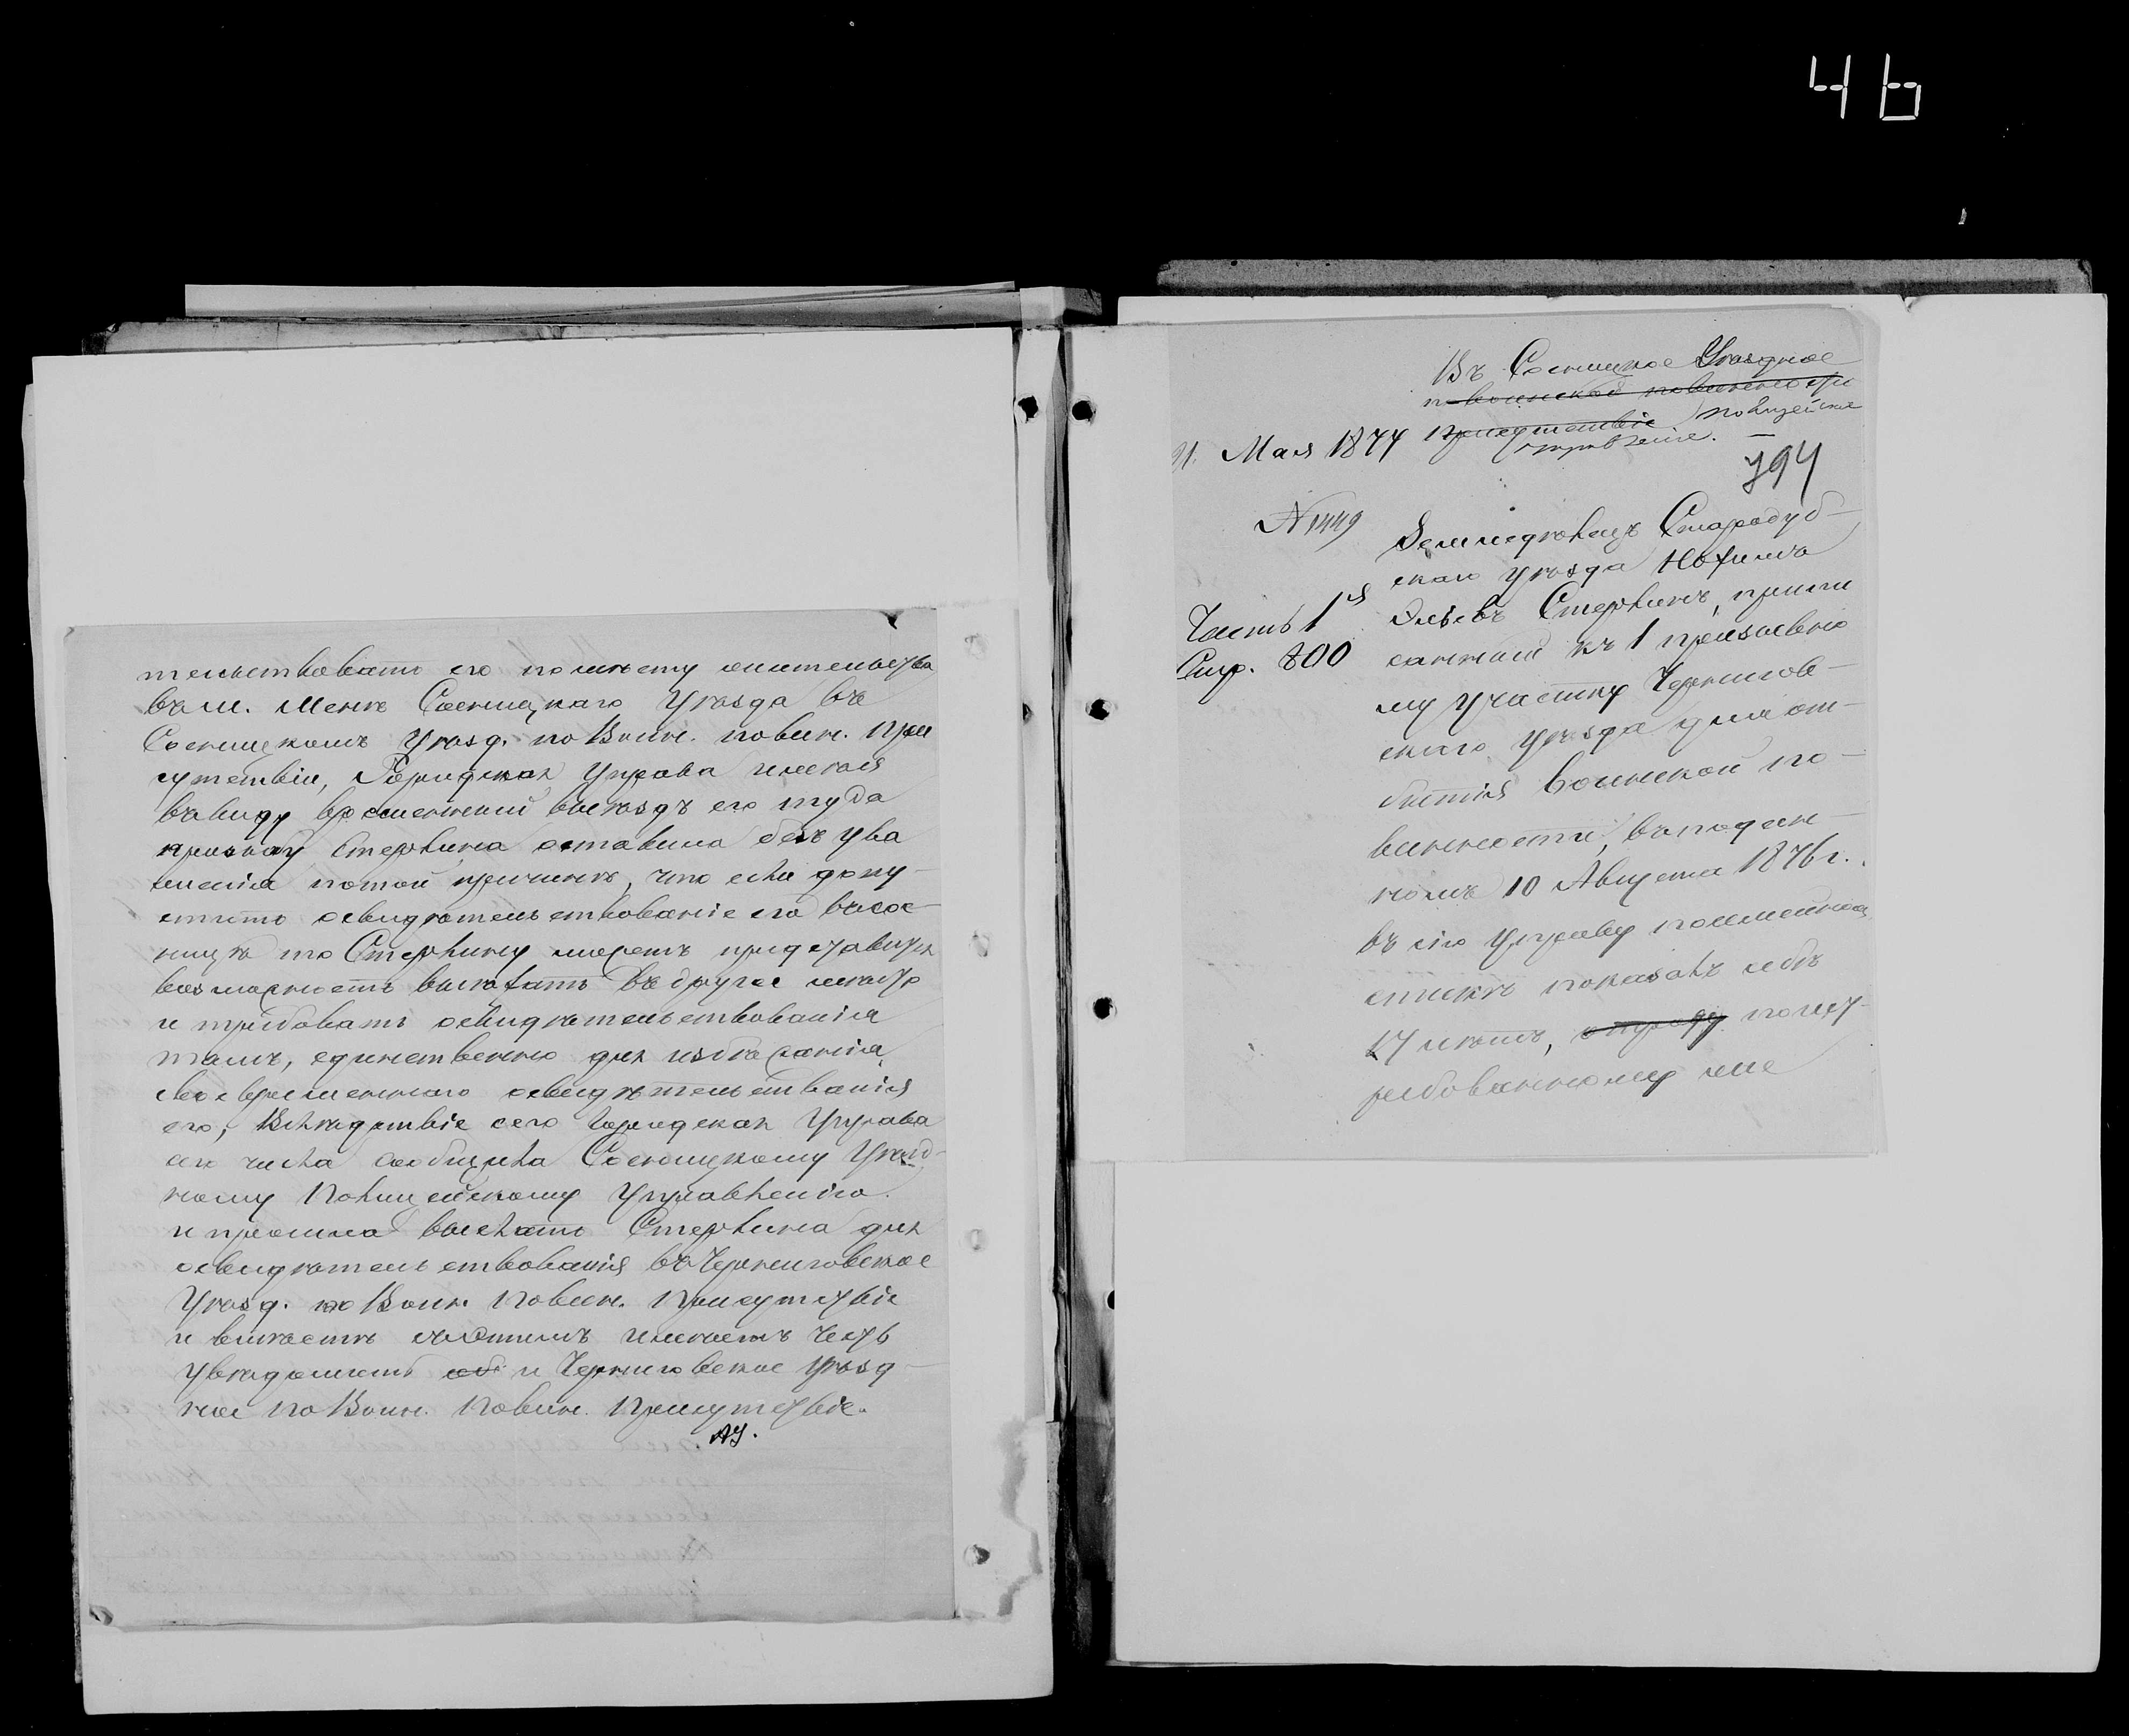 46
тельствовать его по мѣсту жительства
въ м. Менѣ Сосницкаго Уѣзда въ
Сосницкомъ Уѣзд. по Воин. повин. При
сутствіи, Городская Управа имѣя
ввиду временный выѣздъ его туда
просьбу Стерлина оставила безъ ува
женія потой причинѣ, что если допу-
стить освидѣтельствованіе его въ Сос-
ницѣ то Стерлину можетъ представится
возможность выѣхать въ другое мѣсто
и требовать освидѣтельствованія
тамъ, единственно для избѣжанія
своевременнаго освидѣтельствванія
его, Вслѣдствіе сего Городская Управа
сего числа сообщила Сосницкому Уѣзд-
ному Полицейскому Управленію
и просила выслать Стерлина для
освидѣтельствованія въ Черниговское
Уѣзд. по Воин. Повин. Присутствіе
и вмѣстѣ съ симъ имѣетъ честь
увѣдомить объ и Черниговское Уѣзд-
ное по Воин. Повин. Присутствіе.
Въ Сосницкое Уѣздное
по воинской повинности
присутствіе Полицейское
управленіе.
11. Мая 1877
794
N 1449
Земледѣлецъ Стародуб-
скаго уѣзда Нохимъ
Часть 1я
Стерлинъ, припи
Стр. 800
санный къ 1 призывно
му участку Чернигов-
скаго уѣзда для от-
бытія воинской по-
винности, въ подан-
номъ 10 Августа 1876 г.
въ сію Управу посемейномъ
спискѣ показалъ себѣ
17 лѣтъ, по нар-
ребованному же